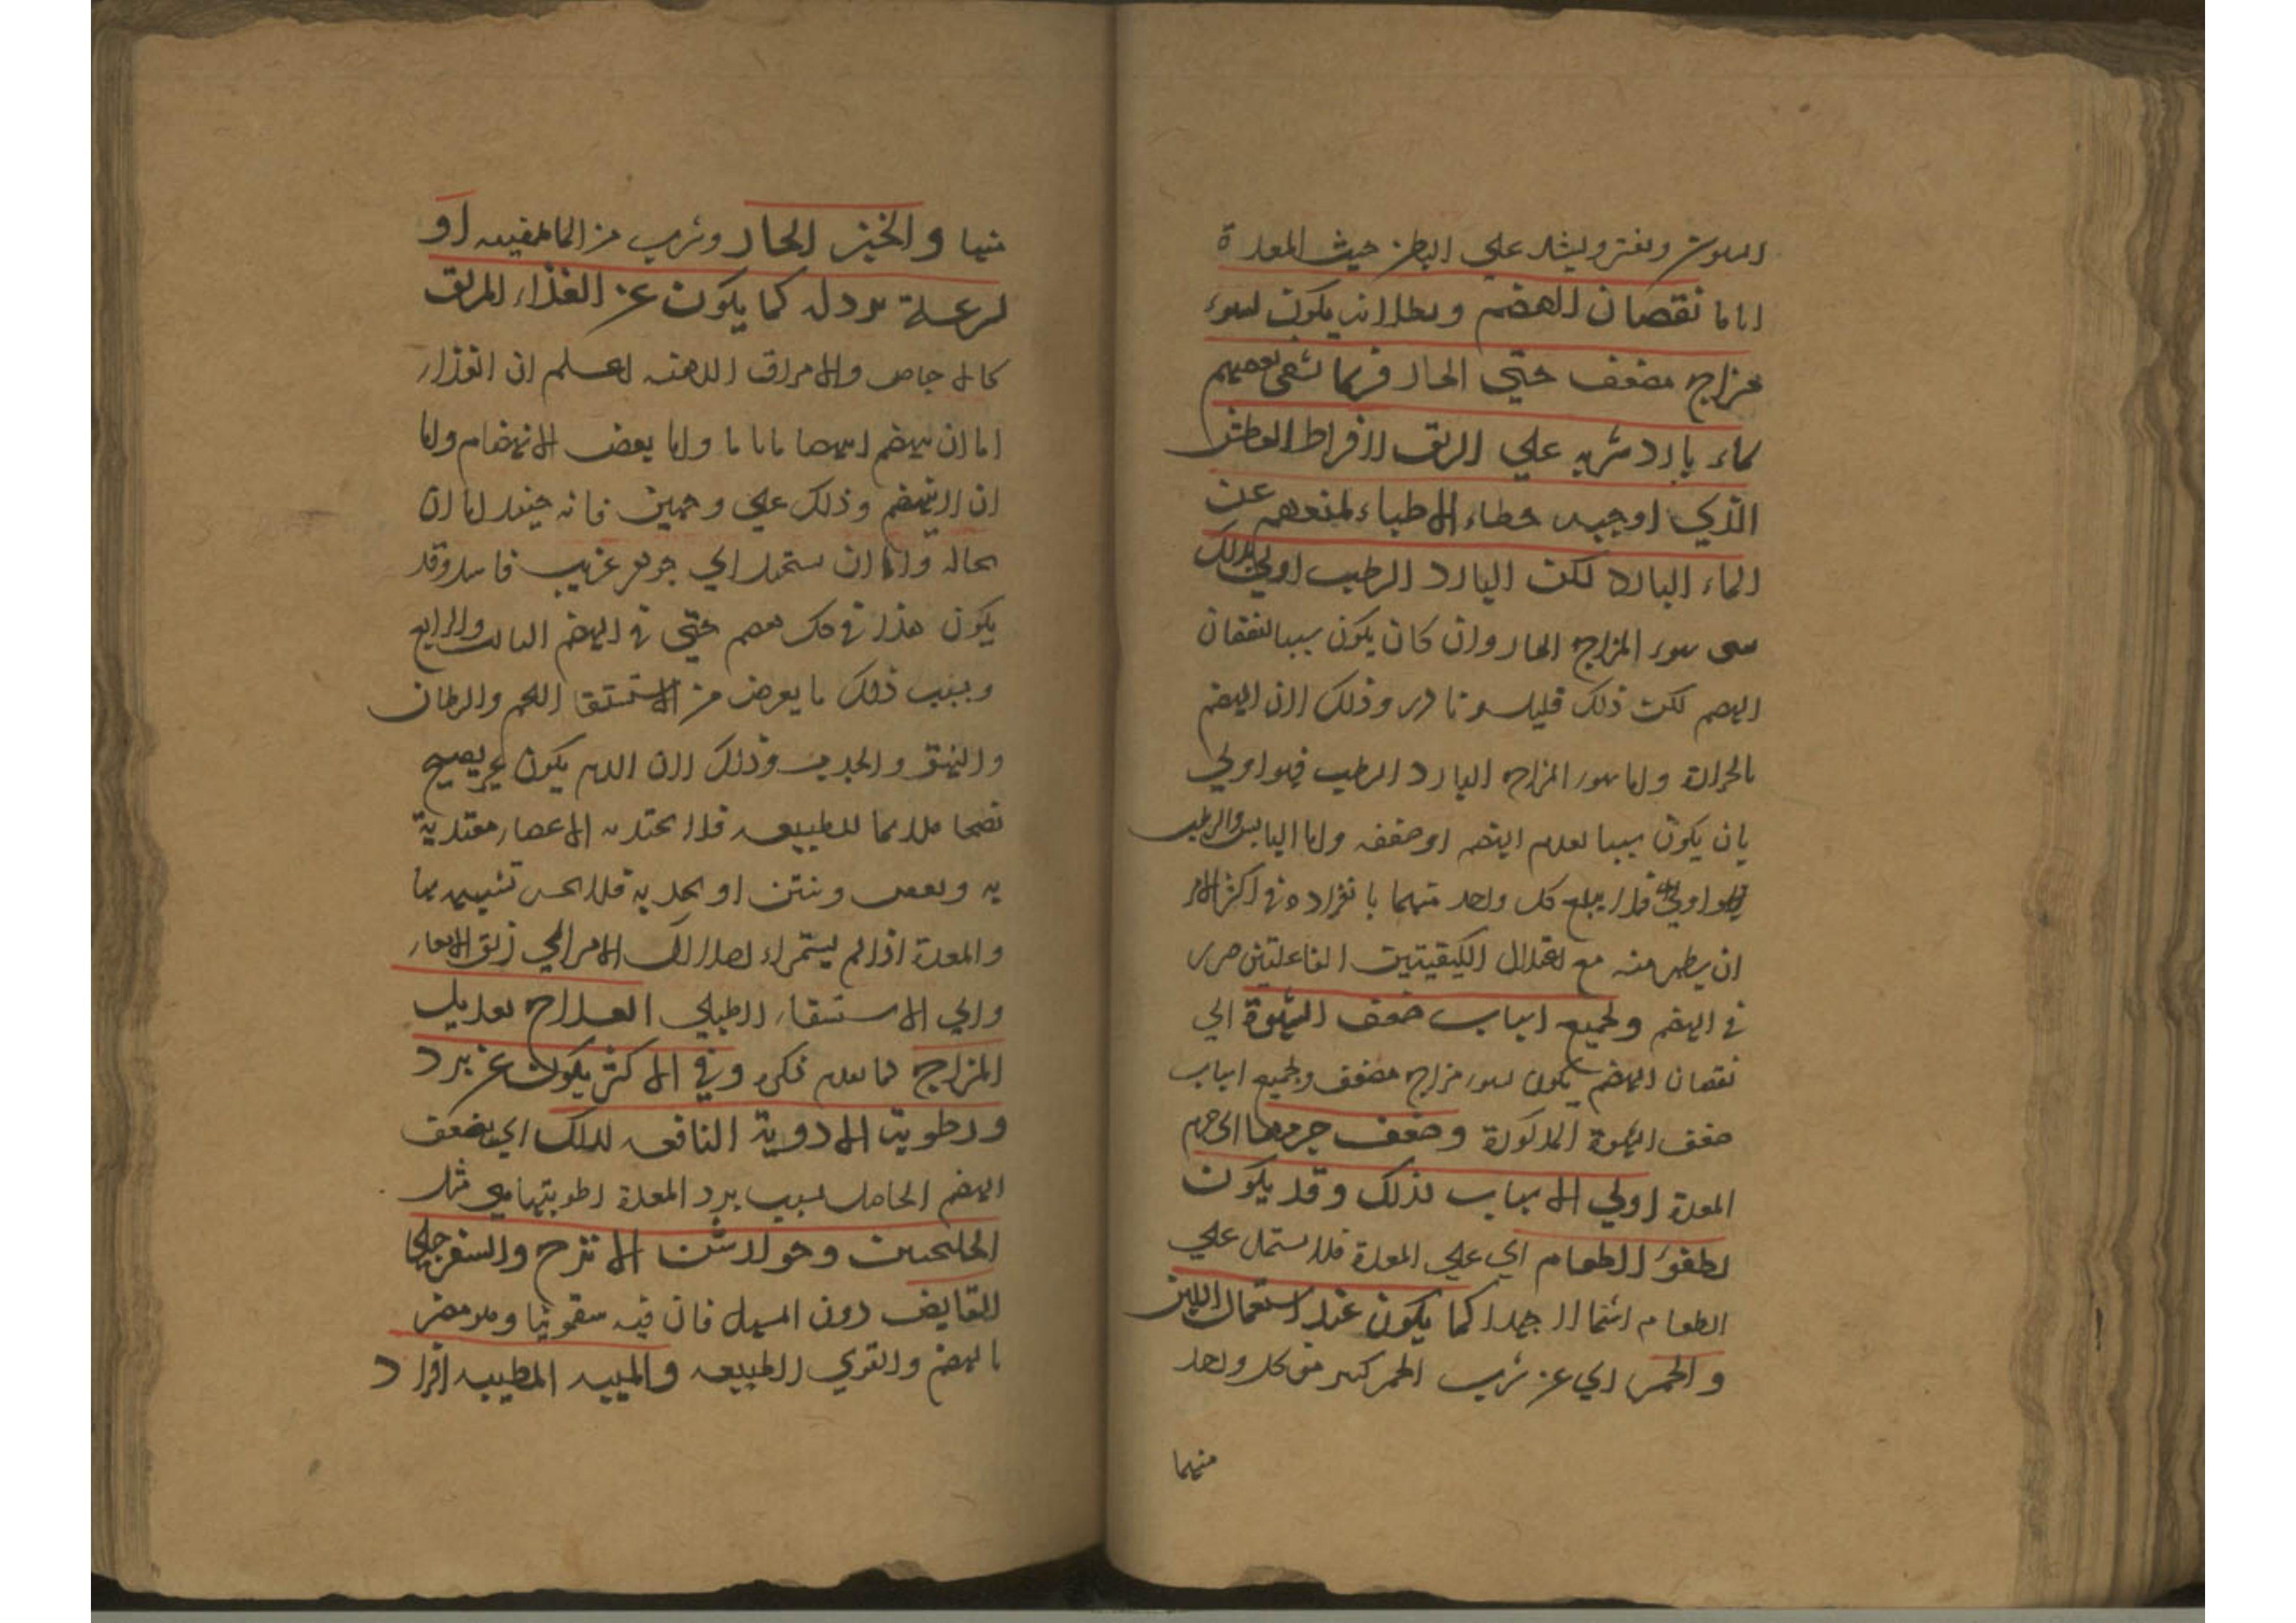 ويفتر ويشد علي البطن حيث المعدة
اما نقصان الهضم وبطلانه يكون لسوء
مزاج مضعف حتي الحار فربما شفي بعضهم
بماء بارد شربه علي الريق لافراط العطش
الذي اوجبه خطاء الاطباء لمنعهم عن
الماء البارد لكن البارد الرطب اولي بذلك
سوء المزاج الحار وان كان يكون سببا لنقصان
الهضم لكن ذلك قليل نادر وذلك لان الهضم
بالحرارة واما سوء المزاج البارد الرطب فهو اولي
بان يكون سببا لعدم الهضم او ضعفه واما اليابس والرطب
فلا يبلغ كل واحد منهما بانفراده في اكثر الامر
ان يظهر منه مع اعتدال الكيفيتين الفاعلتين ضرر
في الهضم ولجميع اسباب ضعف الشهوة اي
نقصان الهضم يكون لسوء مزاج مضعف ولجميع اسباب
ضعف الشهوة المذكورة وضعف جرمها اي جرم
المعدة اولي الاسباب بذلك وقد يكون
لطفو الطعام اي علي المعدة فلا تشتمل علي
الطعام اشتمالا جيدا كما يكون عند استعمال اللبن
والخمر اي عن شرب الخمر كثير من كل واحد
منهما
منهما والخبز الحار وشرب من الماء عقيبه او
لسرعة نزوله كما يكون عن الغذاء المزلق
كالاجاص والامراق الدهنه اعلم ان الغذاء
اما ان ينهضم انهضاما تاما واما بعض الانهضام واما
ان لا ينهضم وذلك علي وجهين فانه حينئذ اما ان
بحاله واما ان يستحيل الي جوهر غريب فاسد وقد
يكون هذا في كل هضم حتي في الهضم الثالث والرابع
وبسبب ذلك ما يعرض من الاستسقا اللحمي والسرطان
والبهق والجرب وذلك لان الدم يكون غير نضيج
نضجا ملايما للطبيعه فلا تجتذبه الاعضاء مغتذية
به ويعفن وينتن او تجذبه فلا يحسن تشبيهه بها
والمعدة اذا لم يستمراء فيها آل الامر الي زلق الامعاء
والي الاستسقاء الطبلي العلاج تعديل
المزاج بما تقدم ذكره وفي الاكثر يكون عن برد
ورطوبة الادوية النافعه لذلك اي لضعف
الهضم الحاصل بسبب برد المعدة ورطوبتها هي مثل
الجلنجبين وجوارشن الاترج والسفرجلي
القابض دون المسهل فان فيه سقمونيا وهو مضر
بالهضم والقوي الطبيعه والميبه المطيبه افراد